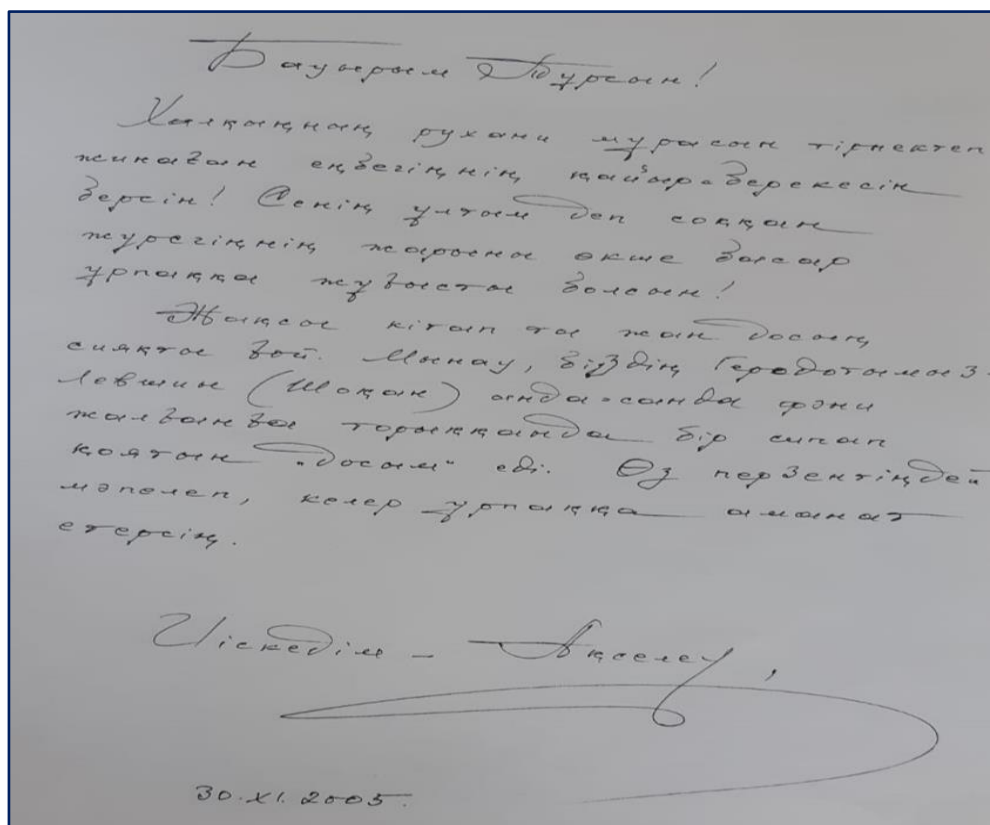 Бауырым Тұрсын!
Халқыңның рухани мұрасын тірнектеп
жинаған еңбегіңнің қайыр-берекесін
берсін! Сенің ұлтым деп соққан
жүрегіңнің жарығы өкше басар
ұрпаққа жұғысты болсын!
Жақсы кітап та жан досың
сияқты ғой. Мынау, біздің Геродотымыз
Левшин (Шоқан) анда-санда фәни
жалғанға торыққанда бір сипап
қоятын „досым" еді. Өз перзентіңдей
мәпелеп, келер ұрпаққа аманат
етерсің.
Иіскедім – Ақселеу,
30.XI.2005.